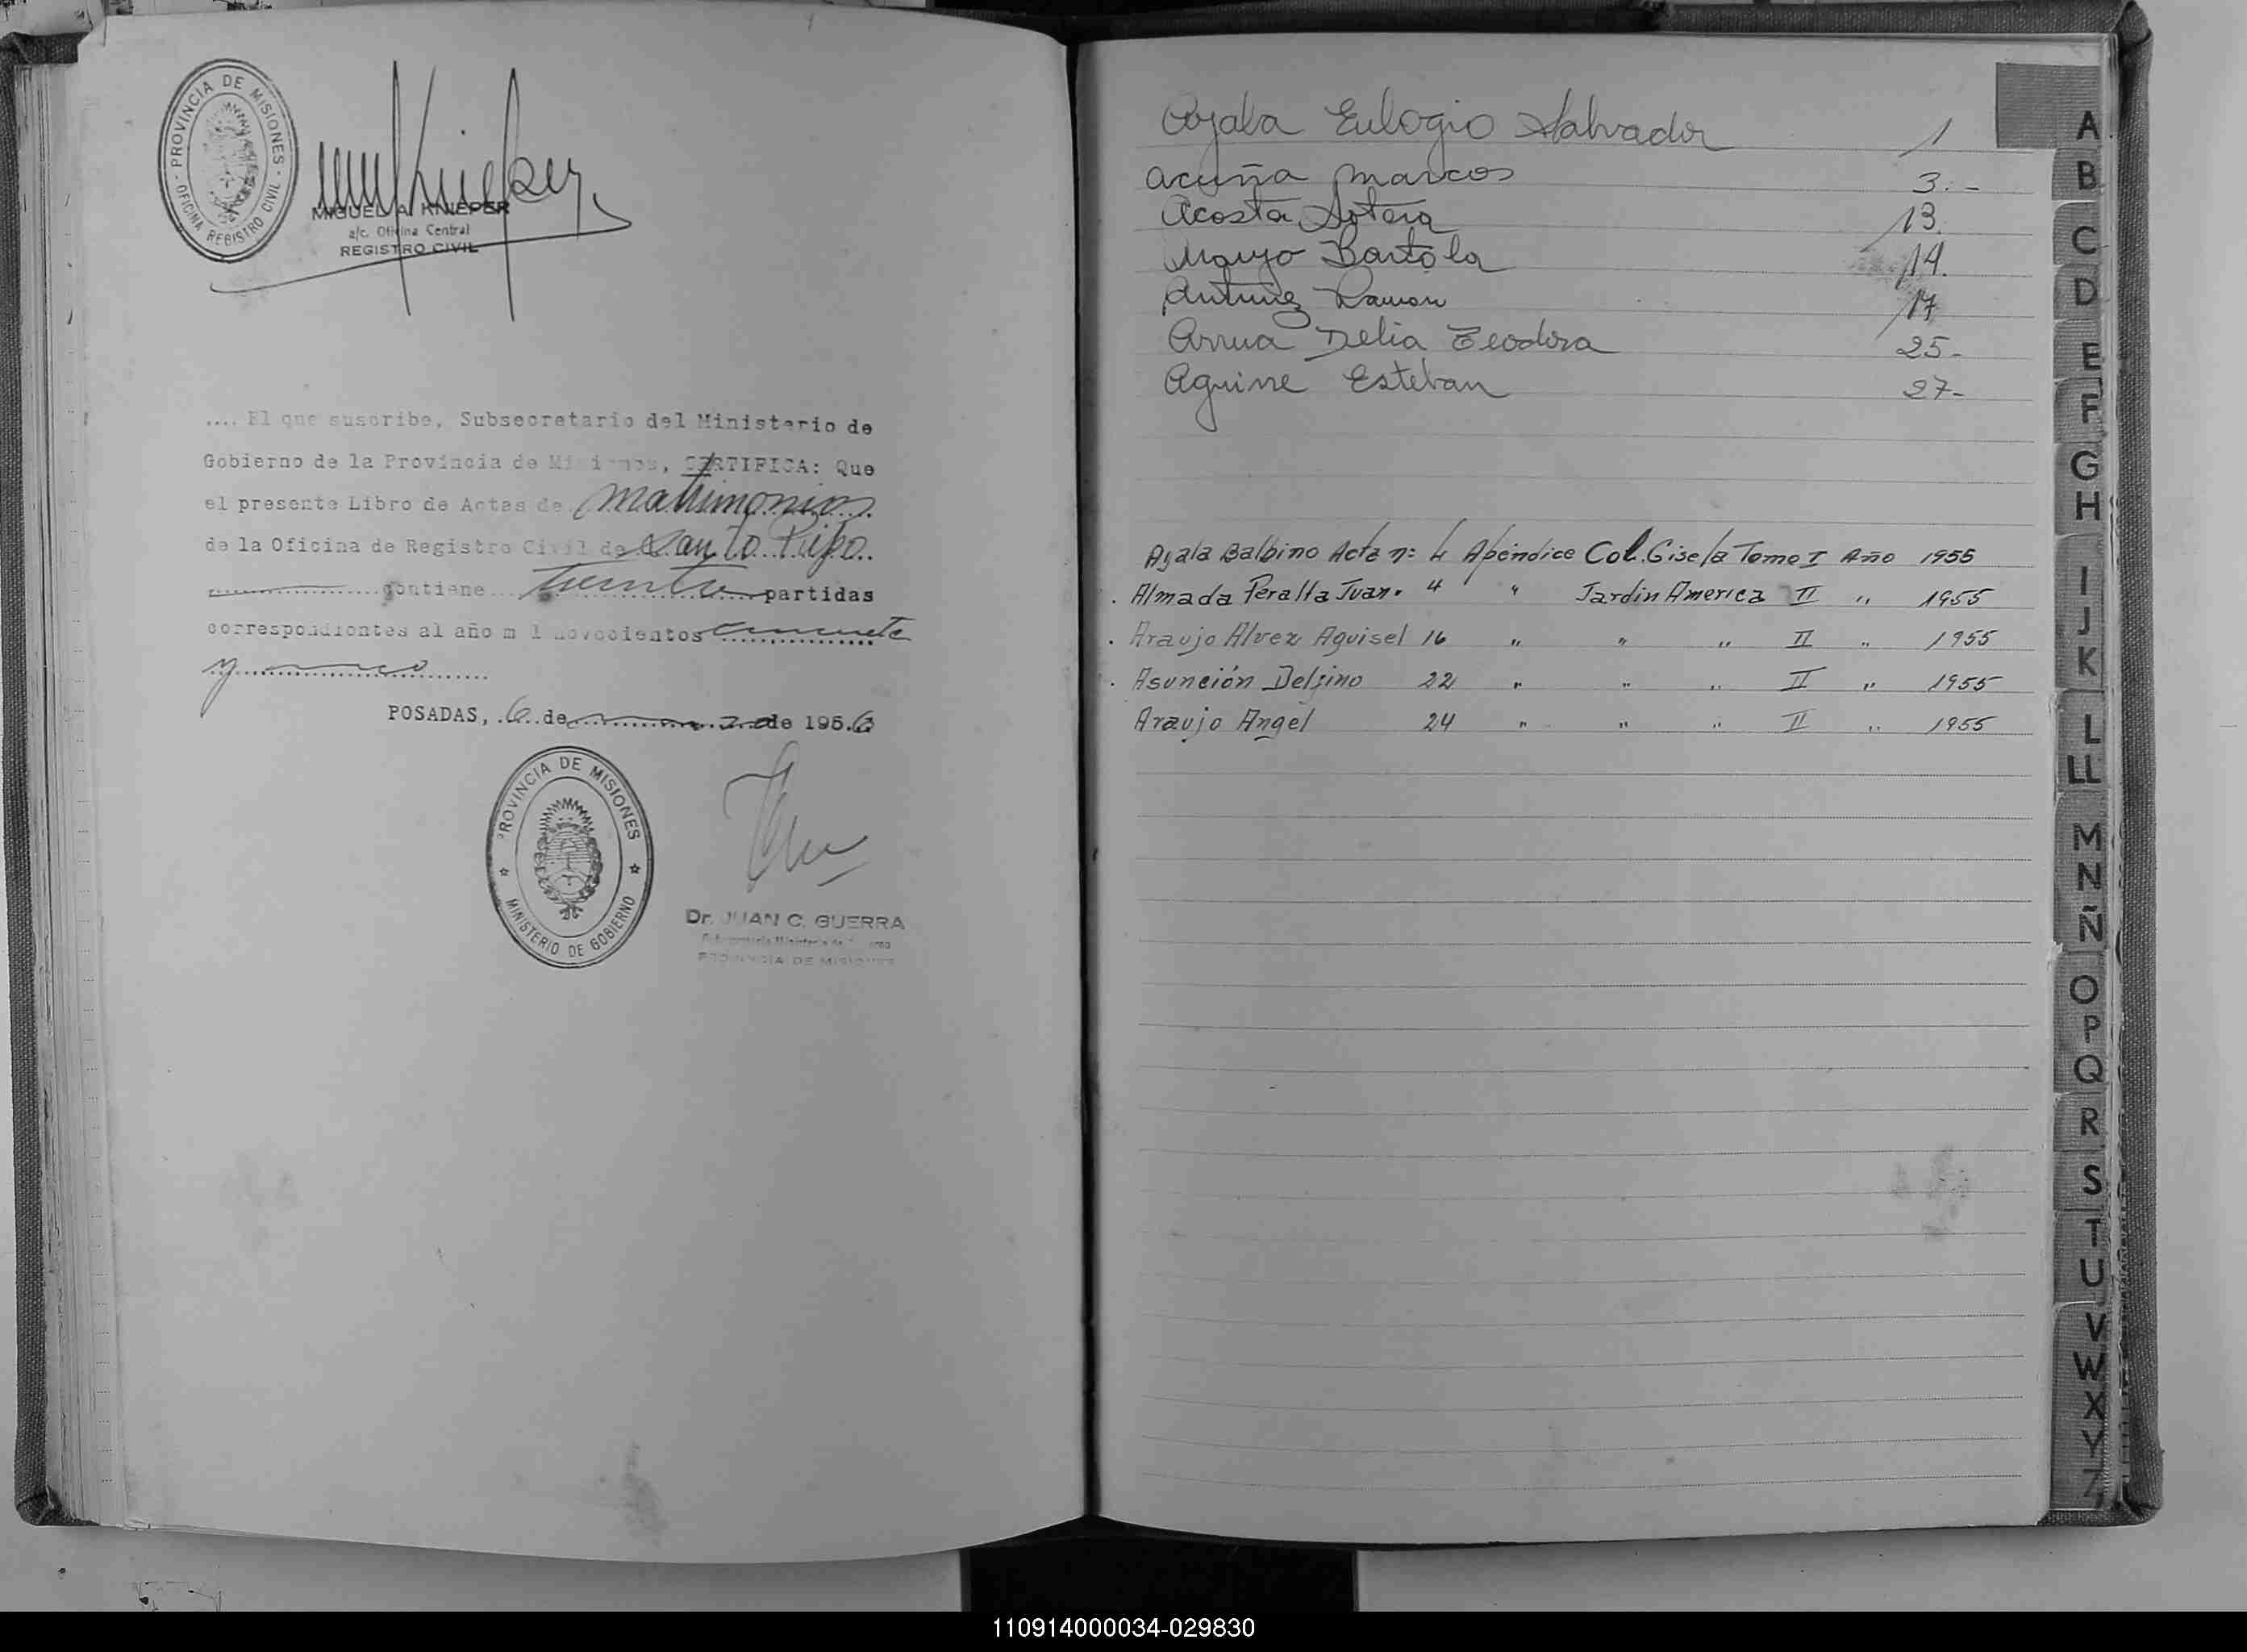 PROVINCIA DE MISIONES
OFICINA REGISTRO CIVIL
MIGUEL A. KNIEPER
a/c. Oficina Central
REGISTRO CIVIL
.... El que suscribe, Subsecretario del Ministerio de
Gobierno de la Provincia de Misiones, CERTIFICA: Que
el presente Libro de Actas de Matrimonios
de la Oficina de Registro Civil de Santo Pipó.
contiene treinta partidas
correspondientes al año mil novecientos cincuenta
y cinco
POSADAS, 6 de marzo de 1956
PROVINCIA DE MISIONES
MINISTERIO DE GOBIERNO
Dr. JUAN C. GUERRA
Subsecretario Ministerio de Gobierno
PROVINCIA DE MISIONES
Ayala Eulogio Salvador 1
Acuña Marcos 3.-
Acosta Sotera 13.
Bartola 14.
Antunez Ramon 17
Arrua Delia Teodora 25-
Aguirre Esteban 27-
Ayala Balbino Acta nº 4 Apéndice Col. Gisela Tomo I Año 1955
Almada Peralta Juan. 4 " Jardin America II " 1955
Araujo Alvez Aguisel 16 " " " II " 1955
Asunción Delfino 22 " " " II " 1955
Araujo Angel 24 " " " II " 1955
A
B
C
D
E
F
G
H
I
J
K
L
LL
M
N
Ñ
O
P
Q
R
S
T
U
V
W
X
Y
Z
110914000034-029830